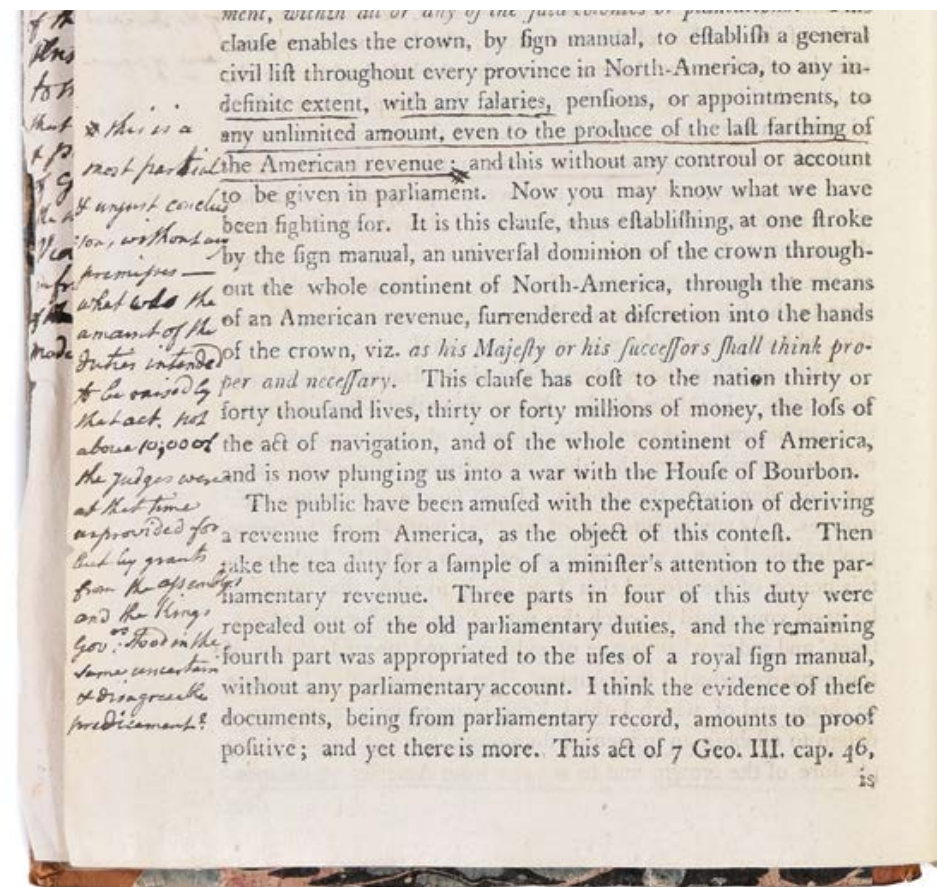 ment, within all or any of the said colonies or plantations. This
clauſe enables the crown, by ſign manual, to eſtabliſh a general
civil liſt throughout every province in North-America, to any in-
definite extent, with any ſalaries, penſions, or appointments, to
any unlimited amount, even to the produce of the laſt farthing of
the American revenue; and this without any controul or account
to be given in parliament. Now you may know what we have
been fighting for. It is this clauſe, thus eſtabliſhing, at one ſtroke
by the ſign manual, an univerſal dominion of the crown through-
out the whole continent of North-America, through the means
of an American revenue, ſurrendered at diſcretion into the hands
of the crown, viz. as his Majeſty or his ſucceſſors ſhall think pro-
per and neceſſary. This clauſe has coſt to the nation thirty or
forty thouſand lives, thirty or forty millions of money, the loſs of
the act of navigation, and of the whole continent of America,
and is now plunging us into a war with the Houſe of Bourbon.
The public have been amuſed with the expectation of deriving
a revenue from America, as the object of this conteſt. Then
take the tea duty for a ſample of a miniſter's attention to the par-
liamentary revenue. Three parts in four of this duty were
repealed out of the old parliamentary duties, and the remaining
fourth part was appropriated to the uſes of a royal ſign manual,
without any parliamentary account. I think the evidence of theſe
documents, being from parliamentary record, amounts to proof
poſitive; and yet there is more. This act of 7 Geo. III. cap. 46,
is
this is a
most partial
& unjust conclus
ions, without any
premises —
what was the
amount of the
duties intended
to be raised by
that act. not
above 10,000£
the judges were
at that time
unprovided for
but by grants
from the assemblys
and the Kings
Gov.rs stood in the
same uncertain
& disagreeable
predicament?